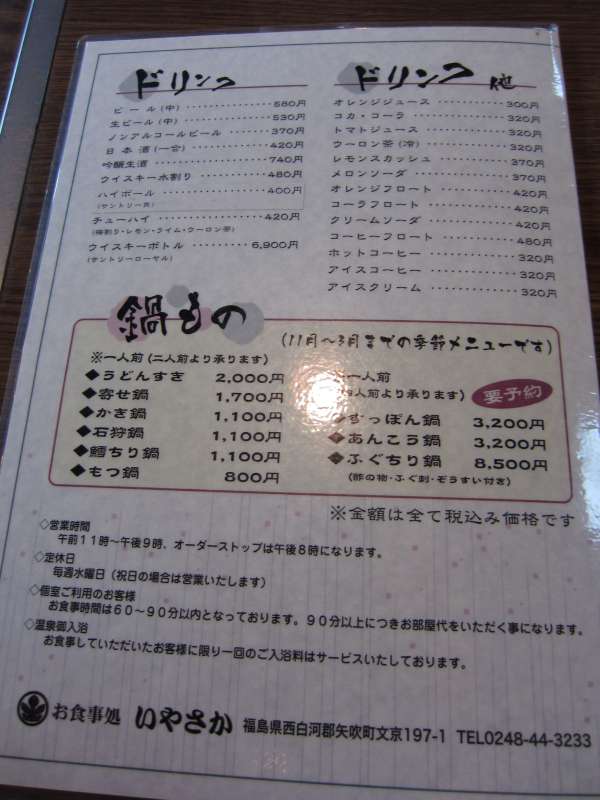 ドリンク
ビール(中) 580円
生ビール(中) 530円
ノンアルコールビール 370円
日本酒(一合) 420円
吟醸生酒 740円
ウイスキー水割り 480円
ハイボール 400円
(サントリー角)
チューハイ 420円
(梅割り・レモン・ライム・ウーロン茶)
ウイスキーボトル 6,900円
(サントリーローヤル)
ドリンク 他
オレンジジュース 300円
コカ・コーラ 320円
トマトジュース 320円
ウーロン茶(冷) 320円
レモンスカッシュ 370円
メロンソーダ 370円
オレンジフロート 420円
コーラフロート 420円
クリームソーダ 420円
コーヒーフロート 480円
ホットコーヒー 320円
アイスコーヒー 320円
アイスクリーム 320円
鍋もの
(11月〜3月までの季節メニューです)
※一人前(二人前より承ります)
◆うどんすき 2,000円
◆寄せ鍋 1,700円
◆かき鍋 1,100円
◆石狩鍋 1,100円
◆鱈ちり鍋 1,100円
◆もつ鍋 800円
一人前
人前より承ります)
要予約
すっぽん鍋 3,200円
◆あんこう鍋 3,200円
◆ふぐちり鍋 8,500円
(酢の物・ふぐ刺・ぞうすい付き)
※金額は全て税込み価格です
◇営業時間
午前11時〜午後9時、オーダーストップは午後8時になります。
◇定休日
毎週水曜日(祝日の場合は営業いたします)
◇個室ご利用のお客様
お食事時間は60〜90分以内となっております。90分以上につきお部屋代をいただく事になります。
◇温泉御入浴
お食事していただいたお客様に限り一回のご入浴料はサービスいたしております。
お食事処 いやさか 福島県西白河郡矢吹町文京197-1 TEL0248-44-3233